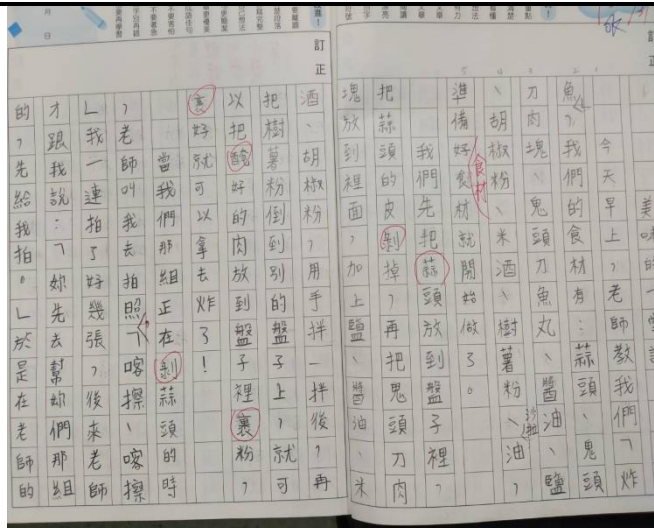 訂正
美味的
今天早上，老師教我們「炸
魚」，我們的食材有：蒜頭、鬼頭
刀肉塊、鬼頭刀魚丸、醬油、鹽
、胡椒粉、米酒、樹薯粉、沙拉油，
準備好食材就開始做了。
食材
我們先把蒜頭放到盤子裡，
把蒜頭的皮剝掉，再把鬼頭刀肉
塊放到裡面，加上鹽、醬油、米
訂正
酒、胡椒粉，用手拌一拌後，再
把樹薯粉倒到別的盤子上，就可
以把醃好的肉放到盤子裡裹粉，
裹好就可以拿去炸了！
當我們那組正在剝蒜頭的時
，老師叫我去拍照「喀擦、喀擦
」我一連拍了好幾張，後來老師
才跟我說：「妳先去幫妳們那組
的，先給我拍。」於是在老師的
月
日